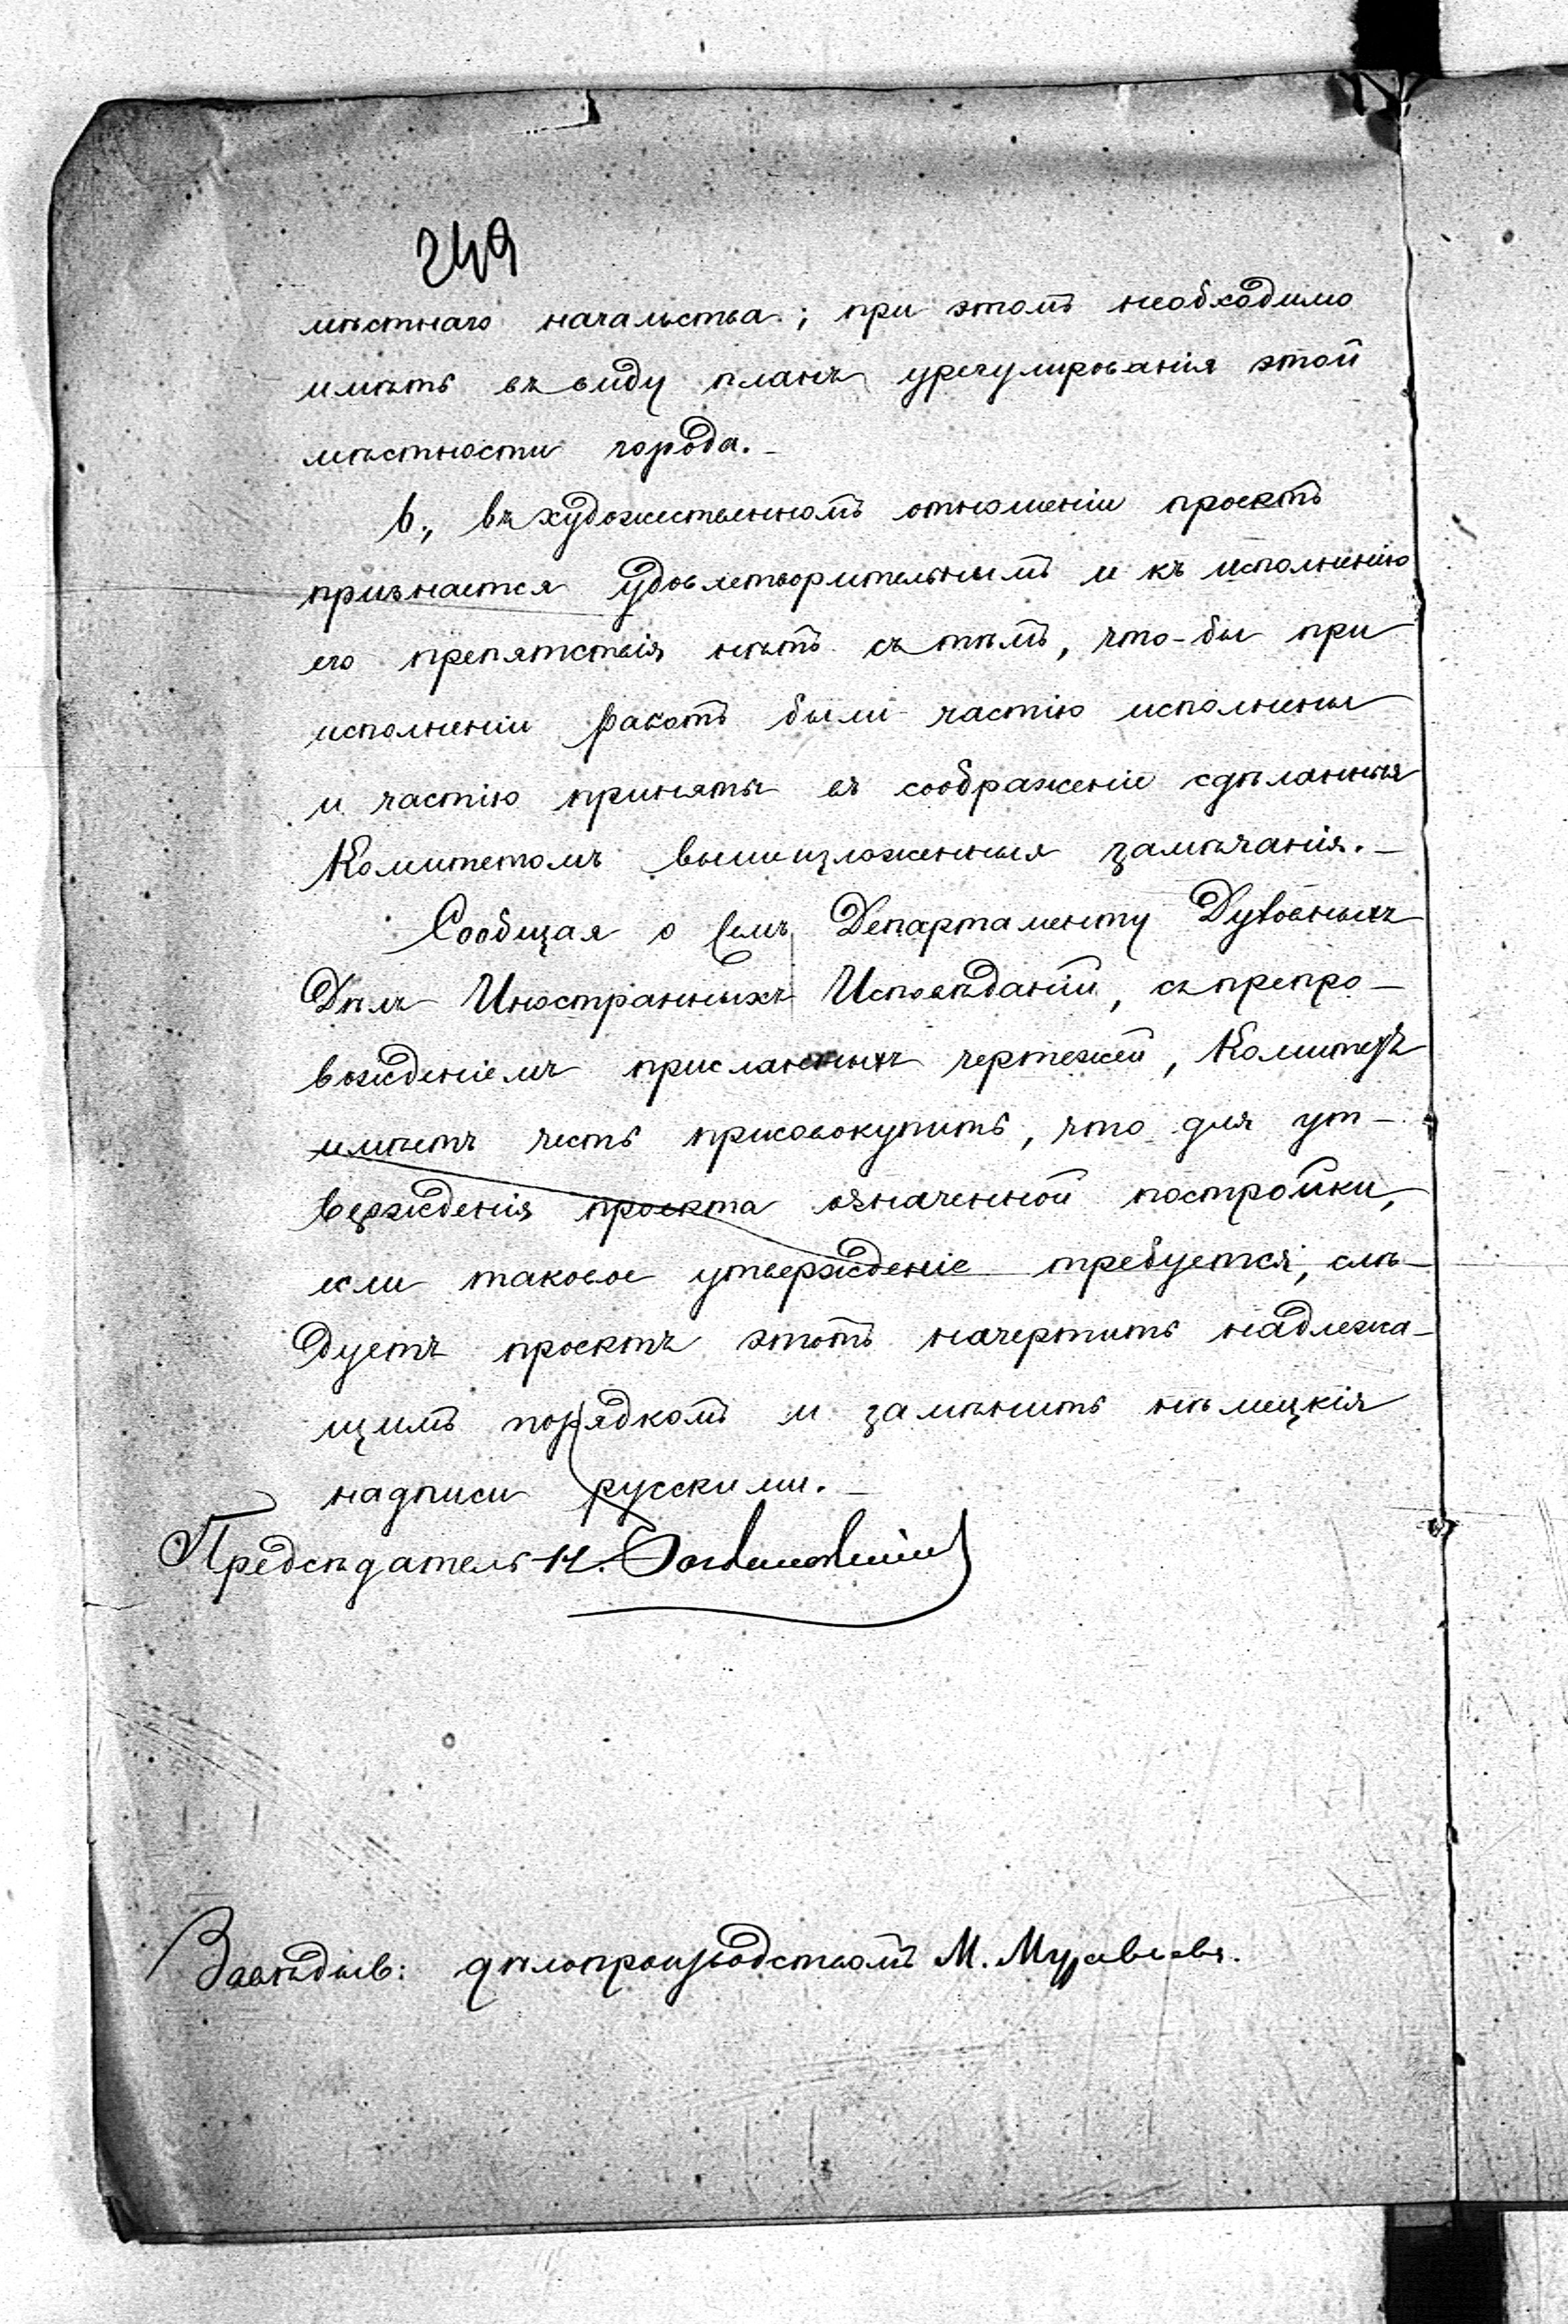 249
мѣстнаго начальства; при этомъ необходимо
имѣть въ виду планъ урегулированія этой
мѣстности города. –
в., въ художественномъ отношеніи проектъ
признается удовлетворительнымъ и къ исполненію
его препятствія нѣтъ съ тѣмъ, что-бы при
исполненіи работъ были частію исполнены
и частію приняты въ соображеніе сдѣланныя
Комитетомъ вышеизложенныя замѣчанія. –
Сообщая о семъ Департаменту Духовныхъ
Дѣлъ Иностранныхъ Исповѣданій, съ препро-
вожденіемъ присланныхъ чертежей, Комитетъ
имѣетъ честь присовокупить, что для ут-
вержденія проекта означенной постройки,
если таковое утвержденіе требуется, слѣ-
дуетъ проектъ этотъ начертить надлежа-
щимъ порядкомъ и замѣнить нѣмецкія
надписи русскими. –
Предсѣдатель Н.
Завѣдыв: дѣлопроизводствомъ М. Муравьевъ.